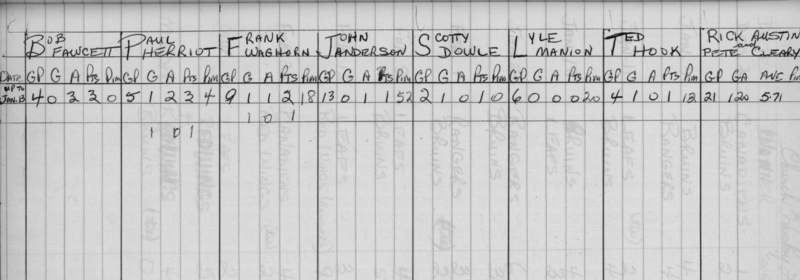 BOB FAWCETT PAUL HERRIOT FRANK WAGHORN JOHN ANDERSON SCOTTY DOWLE LYLE MANION TED HOOK RICK AUSTIN and PETE CLEARY
DATE GP G A Pts Pim GP G A Pts Pim GP G A Pts Pim GP G A Pts Pim GP G A Pts Pim GP G A Pts Pim GP G A Pts Pim GP GA AVG
UP TO JAN.13 4 0 3 3 0 5 1 2 3 4 9 1 1 2 18 13 0 1 1 52 2 1 0 1 0 6 0 0 0 20 4 1 0 1 12 21 120 5.71
1 0 1 1 0 1